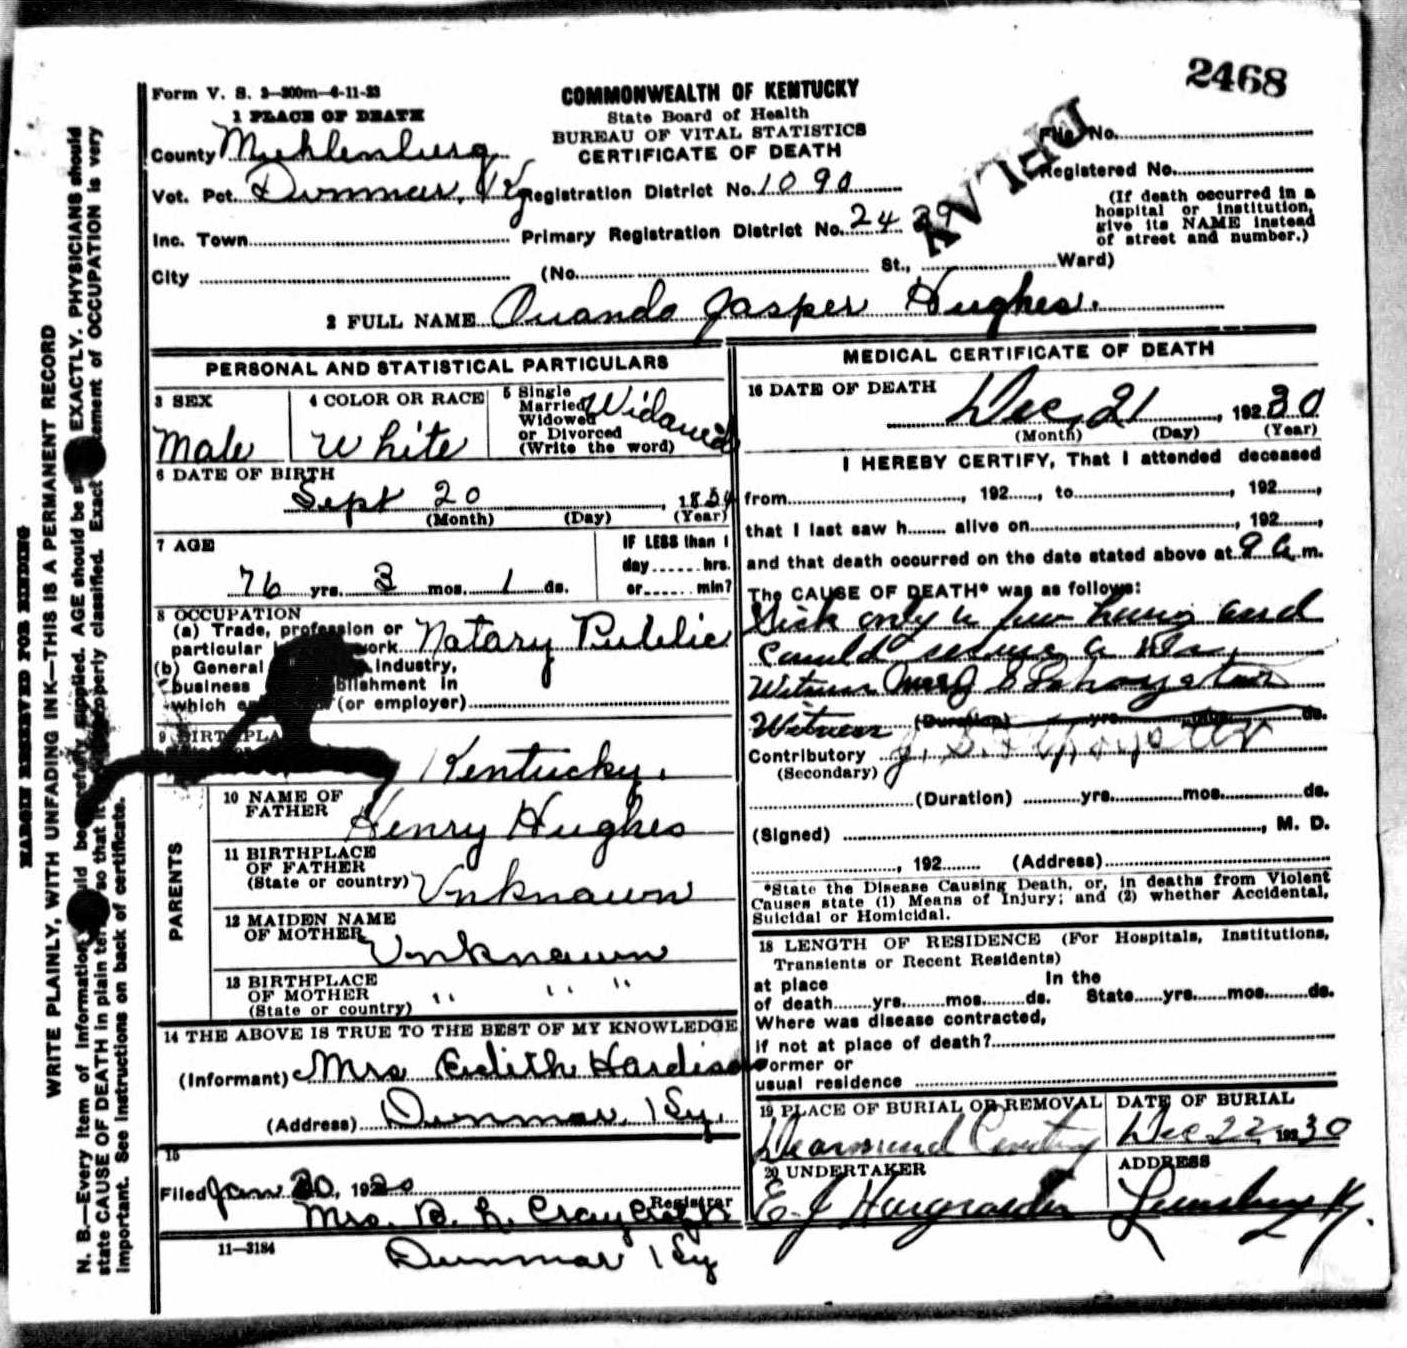 2468
Form V. S. 3—300m—4-11-23
COMMONWEALTH OF KENTUCKY
State Board of Health
BUREAU OF VITAL STATISTICS
CERTIFICATE OF DEATH
DELAY
1 PLACE OF DEATH
County Muhlenburg
File No.
Vot. Pct. Dunmar, Ky Registration District No. 1090
Registered No.
Inc. Town Primary Registration District No. 24
(If death occurred in a
hospital or institution,
give its NAME instead
of street and number.)
City (No. St., Ward)
2 FULL NAME Jasper Hughes.
PERSONAL AND STATISTICAL PARTICULARS
3 SEX
Male
4 COLOR OR RACE
White
5 Single
Married
Widowed
or Divorced
(Write the word)
Widowed
6 DATE OF BIRTH
Sept 20, 1854
(Month) (Day) (Year)
7 AGE
76 yrs. 3 mos. 1 ds.
IF LESS than 1
day hrs.
or min?
8 OCCUPATION
(a) Trade, profession or
particular work Notary Public
(b) General Industry,
business
which (or employer)
9 BIRTHPLA
Kentucky.
PARENTS
10 NAME OF
FATHER Henry Hughes
11 BIRTHPLACE
OF FATHER
(State or country) Unknown
12 MAIDEN NAME
OF MOTHER Unknown
13 BIRTHPLACE
OF MOTHER
(State or country) " " "
14 THE ABOVE IS TRUE TO THE BEST OF MY KNOWLEDGE
(Informant) Mrs Edith Hardison
(Address) Dunmar, Ky.
15
Filed Jan 20, 19
Mrs. B. L. Registrar
11—3184
Dunmar Ky
MEDICAL CERTIFICATE OF DEATH
16 DATE OF DEATH
Dec, 21, 1930
(Month) (Day) (Year)
I HEREBY CERTIFY, That I attended deceased
from, 192, to, 192,
that I last saw h alive on, 192,
and that death occurred on the date stated above at 9 a m.
The CAUSE OF DEATH* was as follows:
Sick only a few hours and
Could secure a Dr.
Witness
Witness (Duration) yrs. mos. ds.
Contributory
(Secondary)
(Duration) yrs. mos. ds.
(Signed), M. D.
, 192 (Address)
*State the Disease Causing Death, or, in deaths from Violent
Causes state (1) Means of Injury; and (2) whether Accidental,
Suicidal or Homicidal.
18 LENGTH OF RESIDENCE (For Hospitals, Institutions,
Transients or Recent Residents)
at place In the
of death yrs. mos. ds. State yrs. mos. ds.
Where was disease contracted,
if not at place of death?
Former or
usual residence
19 PLACE OF BURIAL OR REMOVAL
DATE OF BURIAL
Dec 22 1930
20 UNDERTAKER
E. J
ADDRESS
Ky.
MARGIN RESERVED FOR BINDING
WRITE PLAINLY, WITH UNFADING INK—THIS IS A PERMANENT RECORD
N. B.—Every item of information should be carefully supplied. AGE should be EXACTLY. PHYSICIANS should
state CAUSE OF DEATH in plain so that properly classified. Exact statement of OCCUPATION is very
important. See instructions on back of certificate.